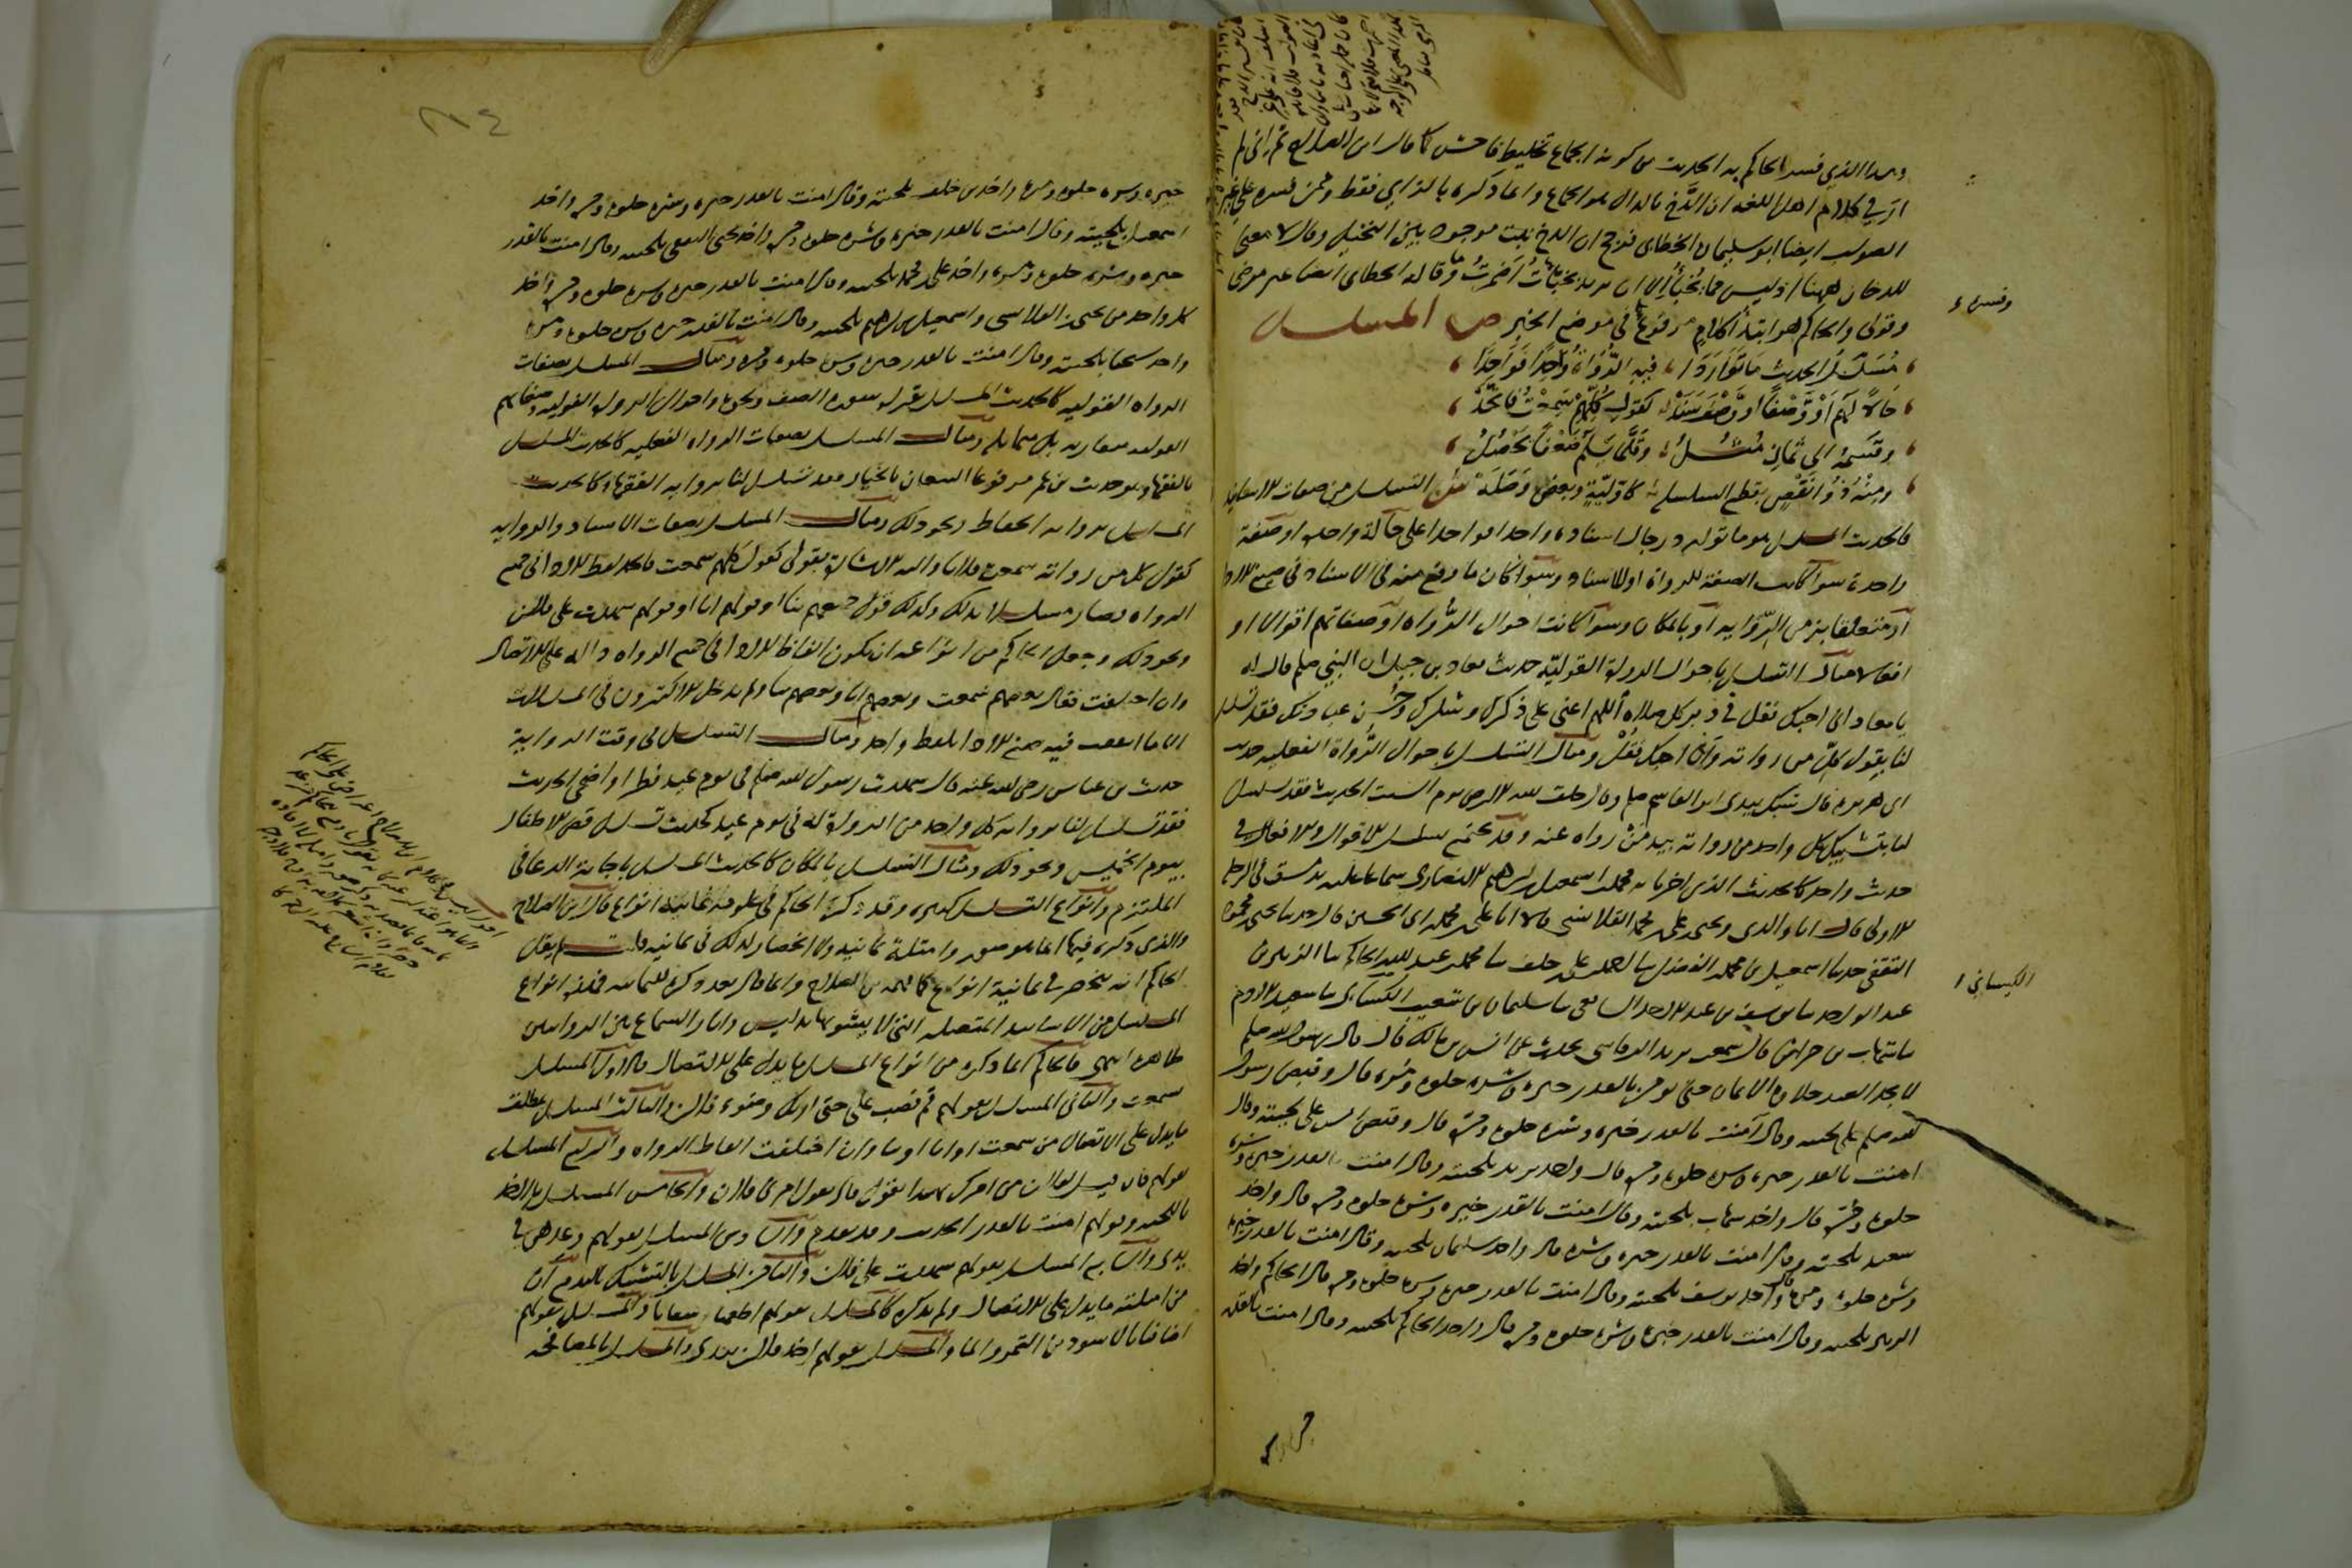 وهذا الذي فسر الحاكم به الحديث من كونه الجماع تخليط فاحش كما قال ابن الصلاح ثم اني لم
ار في كلام اهل اللغه ان الدخ بالدال هو الجماع وانما ذكره بالزاي فقط وممن فسره على غير
الصواب ايضا ابو سليمان الخطابي فرجح ان الدخ نبت موجود بين النخيل وقال لا معنى
للدخان ههنا اذ ليس مما يخبأ الا ان يريد بخبأت اضمرت وما قاله الخطابي ايضا غير مرضي
وقولي والحاكم هو ابتدا كلام مرفوع في موضع الخبر ص المسلسل
مسلسل الحديث ما تواردا فيه الرواة واحدا فواحدا
حالا لهم او وصفا او وصف سند كقول كلهم سمعت فاتحد
وقسمه الى ثمان مثل وقلما يسلم ضعفا يحصل
ومنه ذو نقص بقطع السلسله كاولية وبعض وصله ش التسلسل من صفات الاسانيد
فالحديث المسلسل هو ما توارد رجال اسناده واحدا فواحدا على حالة واحده او صفة
واحدة سوا كانت الصفة للرواة او للاسناد وسوا كان ما وقع منه في الاسناد في صيغ الادا
او متعلقا بزمن الرواية او بالمكان وسوا كانت احوال الرواة او صفاتهم اقوالا او
افعالا مثال التسلسل باحوال الرواة القولية حديث معاذ بن جبل ان النبي صلعم قال له
يا معاذ اني احبك فقل في دبر كل صلاه اللهم اعني على ذكرك وشكرك وحسن عبادتك فقد تسلسل
لنا بقول كل من رواته وانا احبك فقل ومثال التسلسل باحوال الرواة الفعليه حديث
ابي هريره قال شبك بيدي ابو القاسم صلعم وقال خلق الله الارض يوم السبت الحديث فقد تسلسل
لنا بتشبيك كل واحد من رواته بيد من رواه عنه وقد يجتمع تسلسل الاقوال والافعال في
حديث واحد كالحديث الذي اخبرنا به محمد بن اسمعيل بن ابرهيم الانصاري سماعا عليه بدمشق في الرحلة
الاولى قال انا والدي ويحيى بن علي بن محمد القلانسي قالا انا علي بن محمد بن ابي الحسن قال حدثنا يحيى بن محمود
الثقفي حدثنا اسمعيل بن محمد بن الفضل ثنا احمد بن علي بن خلف ثنا محمد بن عبد الله الحاكم ثنا الزبير بن
عبد الواحد ثنا يوسف بن عبد الاحد الشافعي ثنا سليمان بن شعيب الكيساني ثنا سعيد الادم
ثنا شهاب بن خراش قال سمعت يزيد الرقاشي يحدث عن انس بن مالك قال قال رسول الله صلعم
لا يجد العبد حلاوة الايمان حتى يؤمن بالقدر خيره وشره حلوه ومره قال وقبض رسول
الله صلعم على لحيته وقال آمنت بالقدر خيره وشره حلوه ومره قال وقبض انس على لحيته وقال
امنت بالقدر خيره وشره حلوه ومره قال واخذ يزيد بلحيته وقال امنت بالقدر خيره وشره
حلوه ومره قال واخذ شهاب بلحيته وقال امنت بالقدر خيره وشره حلوه ومره قال واخذ
سعيد بلحيته وقال امنت بالقدر خيره وشره قال واخذ سليمان بلحيته وقال امنت بالقدر خيره
وشره حلوه ومره قال واخذ يوسف بلحيته وقال امنت بالقدر خيره وشره حلوه ومره قال الحاكم واخذ
الزبير بلحيته وقال امنت بالقدر خيره وشره حلوه ومره قال واخذ الحاكم بلحيته وقال امنت بالقدر
الكيساني
خيره وشره حلوه ومره واخذ بن خلف بلحيته وقال امنت بالقدر خيره وشره حلوه ومره واخذ
اسمعيل بلحيته وقال امنت بالقدر خيره وشره حلوه ومره واخذ يحيى الثقفي بلحيته وقال امنت بالقدر
خيره وشره حلوه ومره واخذ علي بن محمد بلحيته وقال امنت بالقدر خيره وشره حلوه ومره واخذ
كل واحد من يحيى بن القلانسي واسمعيل بن ابرهيم بلحيته وقال امنت بالقدر خيره وشره حلوه ومره
واخذ شيخنا بلحيته وقال امنت بالقدر خيره وشره حلوه ومره ومثال المسلسل بصفات
الرواه القوليه كالحديث المسلسل بقراة سورة الصف ونحوه واحوال الرواة القوليه وصفاتهم
القوليه متقاربه بل متماثله ومثال المسلسل بصفات الرواه الفعليه كالحديث المسلسل
بالفقها وهو حديث بن عمر مرفوعا البيعان بالخيار فقد تسلسل لنا برواية الفقها وكالحديث
المسلسل برواية الحفاظ ونحو ذلك ومثال المسلسل بصفات الاسناد والرواية
كقول كل من رواته سمعت فلانا واليه الاشارة بقولي كقول كلهم سمعت فاتحد لفظ الادا في جميع
الرواه فصار مسلسلا بذلك وكذلك قول جميعهم ثنا او قولهم انا او قولهم شهدت على فلان
ونحو ذلك وجعل الحاكم من انواعه ان يكون الفاظ الادا في جميع الرواه داله على الاتصال
وان اختلفت فقال بعضهم سمعت وبعضهم انا وبعضهم ثنا ولم يدخل الاكثرون في المسلسلات
الا ما اتفقت فيه صيغ الادا بلفظ واحد ومثال التسلسل في وقت الرواية
حديث بن عباس رضي الله عنه قال شهدت رسول الله صلعم في يوم عيد فطر او اضحى الحديث
فقد تسلسل لنا برواية كل واحد من الرواة له في يوم عيد كحديث تسلسل قص الاظفار
بيوم الخميس ونحو ذلك ومثال التسلسل بالمكان كالحديث المسلسل باجابة الدعا في
الملتزم وانواع التسلسل كثيره وقد ذكره الحاكم في علومه ثمانية انواع قال ابن الصلاح
والذي ذكره فيها انما هو صور وامثلة ثمانيه ولا انحصار لذلك في ثمانيه قلت لم يقل
الحاكم انه ينحصر في ثمانية انواع كما فهمه بن الصلاح وانما قال بعد ذكره الثمانيه فهذه انواع
المسلسل من الاسانيد المتصله التي لا يشوبها تدليس واثار السماع بين الراويين
ظاهره انتهى فالحاكم انما ذكره من انواع المسلسل ما يدل على الاتصال فالاول المسلسل
سمعت والثاني المسلسل بقولهم قم فصب علي حتى اريك وضوء فلان والثالث المسلسل بمطلق
ما يدل على الاتصال من سمعت او انا او ثنا وان اختلفت الفاظ الرواه والرابع المسلسل
بقولهم فان قيل لفلان من امرك بهذا يقول قال يقول امرني فلان والخامس المسلسل بالاخذ
باللحيه وقولهم امنت بالقدر الحديث وقد تقدم والسادس المسلسل بقولهم وعدهن في
يدي والسابع المسلسل بقولهم شهدت على فلان والثامن المسلسل بالتشبيك باليد مع ان
من امثلته ما يدل على الاتصال ولم يذكره كالمسلسل بقولهم اطعمنا وسقانا والمسلسل بقولهم
اضافنا بالاسودين التمر والما والمسلسل بقولهم اخذ فلان بيدي والمسلسل بالمصافحه